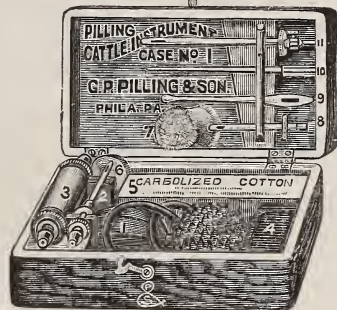 PILLING
CATTLE INSTRUMENT
CASE No 1
G.P. PILLING & SON.
PHILA. PA.
11
10
9
8
7
6
5 CARBOLIZED COTTON
3
2
1
4